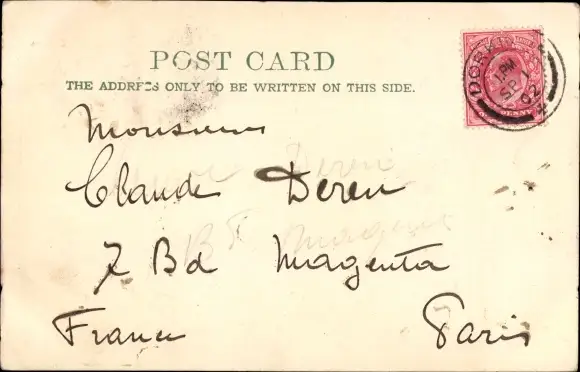 POST CARD
THE ADDRESS ONLY TO BE WRITTEN ON THIS SIDE.
DORKING
1 PM
SP 1
02
Monsieur
Claude Deren
7 Bd Magenta
Paris
France